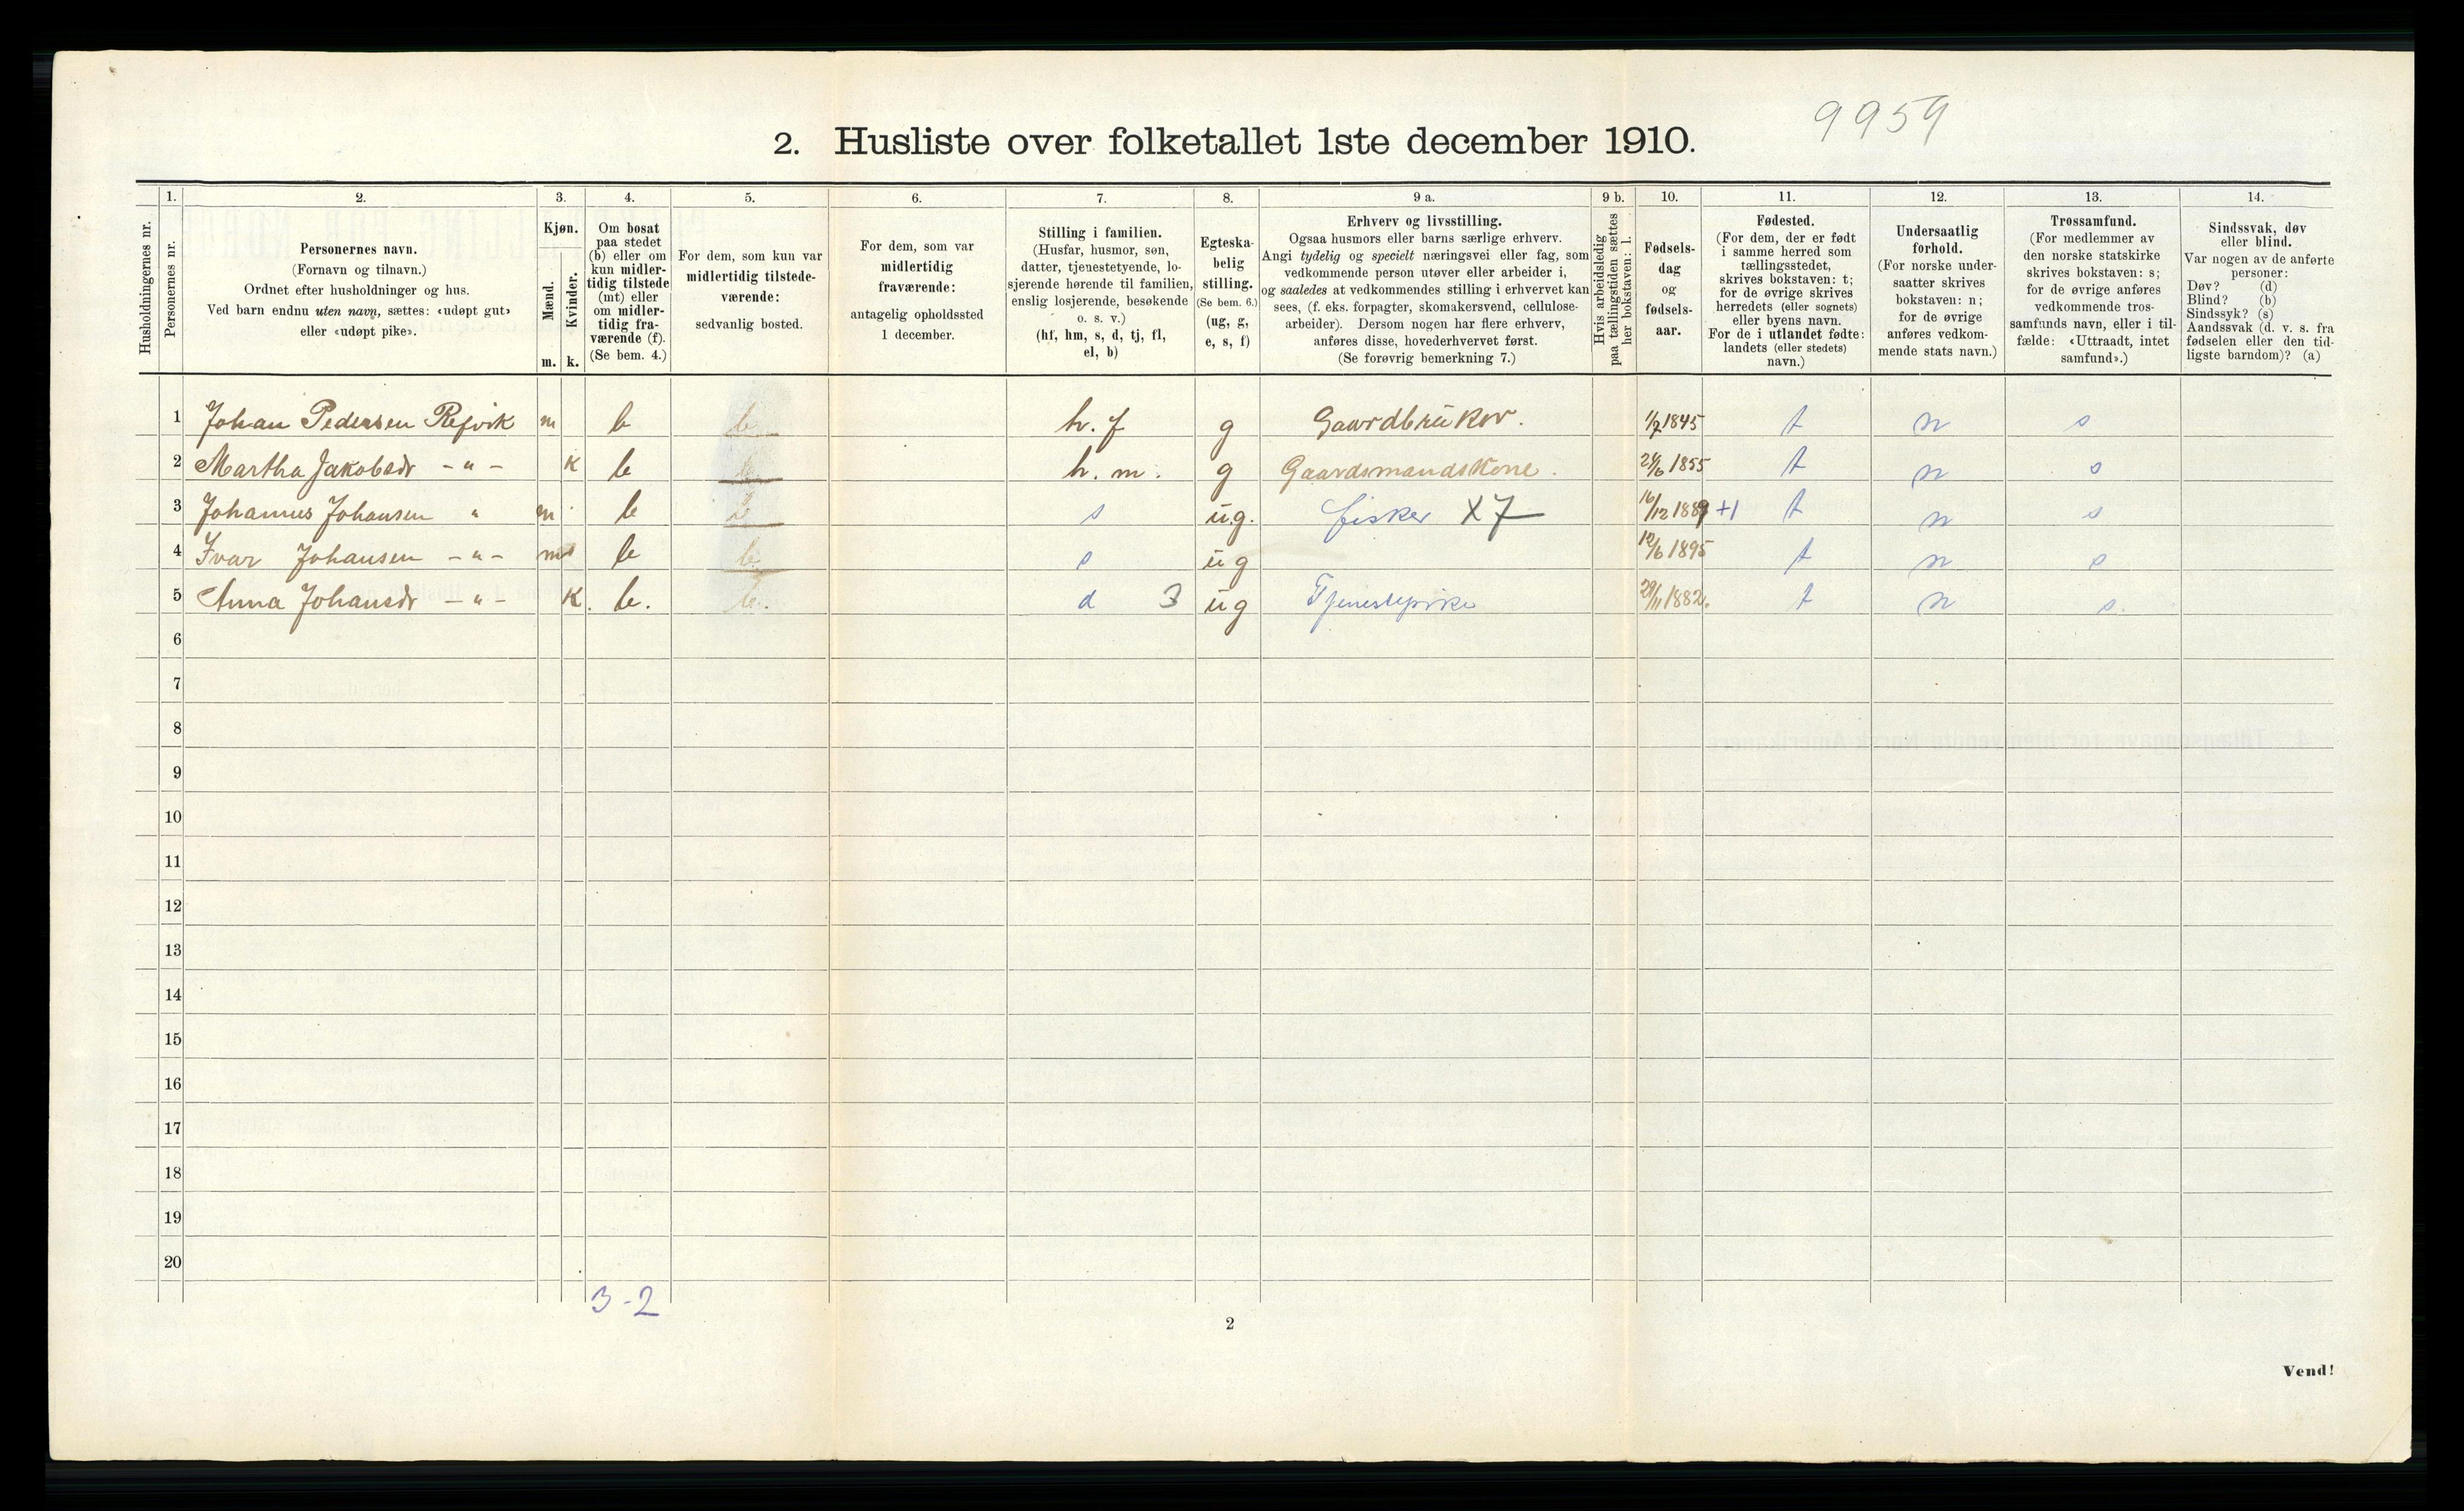 9959
2. Husliste over folketallet 1ste december 1910.
Husholdningernes nr.
1.
Personernes nr.
2.
Personernes navn.
(Fornavn og tilnavn.)
Ordnet efter husholdninger og hus.
Ved barn endnu uten navn, sættes: «udøpt gut»
eller «udøpt pike».
3.
Kjøn.
Mænd. Kvinder.
m. k.
4.
Om bosat
paa stedet
(b) eller om
kun midler-
tidig tilstede
(mt) eller
om midler-
tidig fra-
værende (f).
(Se bem. 4.)
5.
For dem, som kun var
midlertidig tilstede-
værende:
sedvanlig bosted.
6.
For dem, som var
midlertidig
fraværende:
antagelig opholdssted
1 december.
7.
Stilling i familien.
(Husfar, husmor, søn,
datter, tjenestetyende, lo-
sjerende hørende til familien,
enslig losjerende, besøkende
o. s. v.)
(hf, hm, s, d, tj, fl,
el, b)
8.
Egteska-
belig
stilling.
(Se bem. 6.)
(ug, g,
e, s, f)
9 a.
Erhverv og livsstilling.
Ogsaa husmors eller barns særlige erhverv.
Angi tydelig og specielt næringsvei eller fag, som
vedkommende person utøver eller arbeider i,
og saaledes at vedkommendes stilling i erhvervet kan
sees, (f. eks. forpagter, skomakersvend, cellulose-
arbeider). Dersom nogen har flere erhverv,
anføres disse, hovederhvervet først.
(Se forøvrig bemerkning 7.)
9 b.
Hvis arbeidsledig
paa tællingstiden sættes
her bokstaven: l.
10.
Fødsels-
dag
og
fødsels-
aar.
11.
Fødested.
(For dem, der er født
i samme herred som
tællingsstedet,
skrives bokstaven: t;
for de øvrige skrives
herredets (eller sognets)
eller byens navn.
For de i utlandet fødte:
landets (eller stedets)
navn.)
12.
Undersaatlig
forhold.
(For norske under-
saatter skrives
bokstaven: n;
for de øvrige
anføres vedkom-
mende stats navn.)
13.
Trossamfund.
(For medlemmer av
den norske statskirke
skrives bokstaven: s;
for de øvrige anføres
vedkommende tros-
samfunds navn, eller i til-
fælde: «Uttraadt, intet
samfund».)
14.
Sindssvak, døv
eller blind.
Var nogen av de anførte
personer:
Døv? (d)
Blind? (b)
Sindssyk? (s)
Aandssvak (d. v. s. fra
fødselen eller den tid-
ligste barndom)? (a)
1 Johan Pedersen Refvik m b b h. f g Gaardbruker. 1/7 1845 t n s
2 Martha Jakobsdr - " - k b b h. m. g Gaardsmandskone. 24/6 1855 t n s
3 Johannes Johansen " m b s ug. fisker X7 16/12 1889 +1 t n s
4 Ivar Johansen - " - m b b s ug 12/6 1895 t n s
5 Anna Johansdr - " - K. b. b. d 3 ug Tjenestepike 29/11 1882. t n s.
6
7
8
9
10
11
12
13
14
15
16
17
18
19
20
3-2
2
Vend!